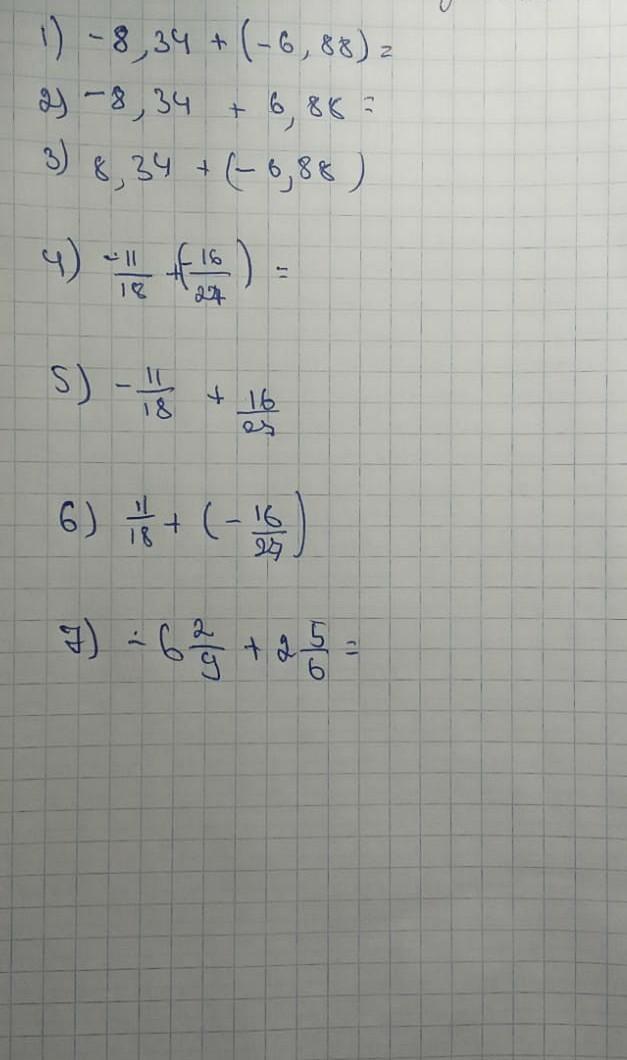 1) -8,34 + (-6,88) =
2) -8,34 + 6,88 =
3) 8,34 + (-6,88)
4) -11/18 + (-16/27) =
5) -11/18 + 16/27
6) 11/18 + (-16/27)
7) -6 2/9 + 2 5/6 =